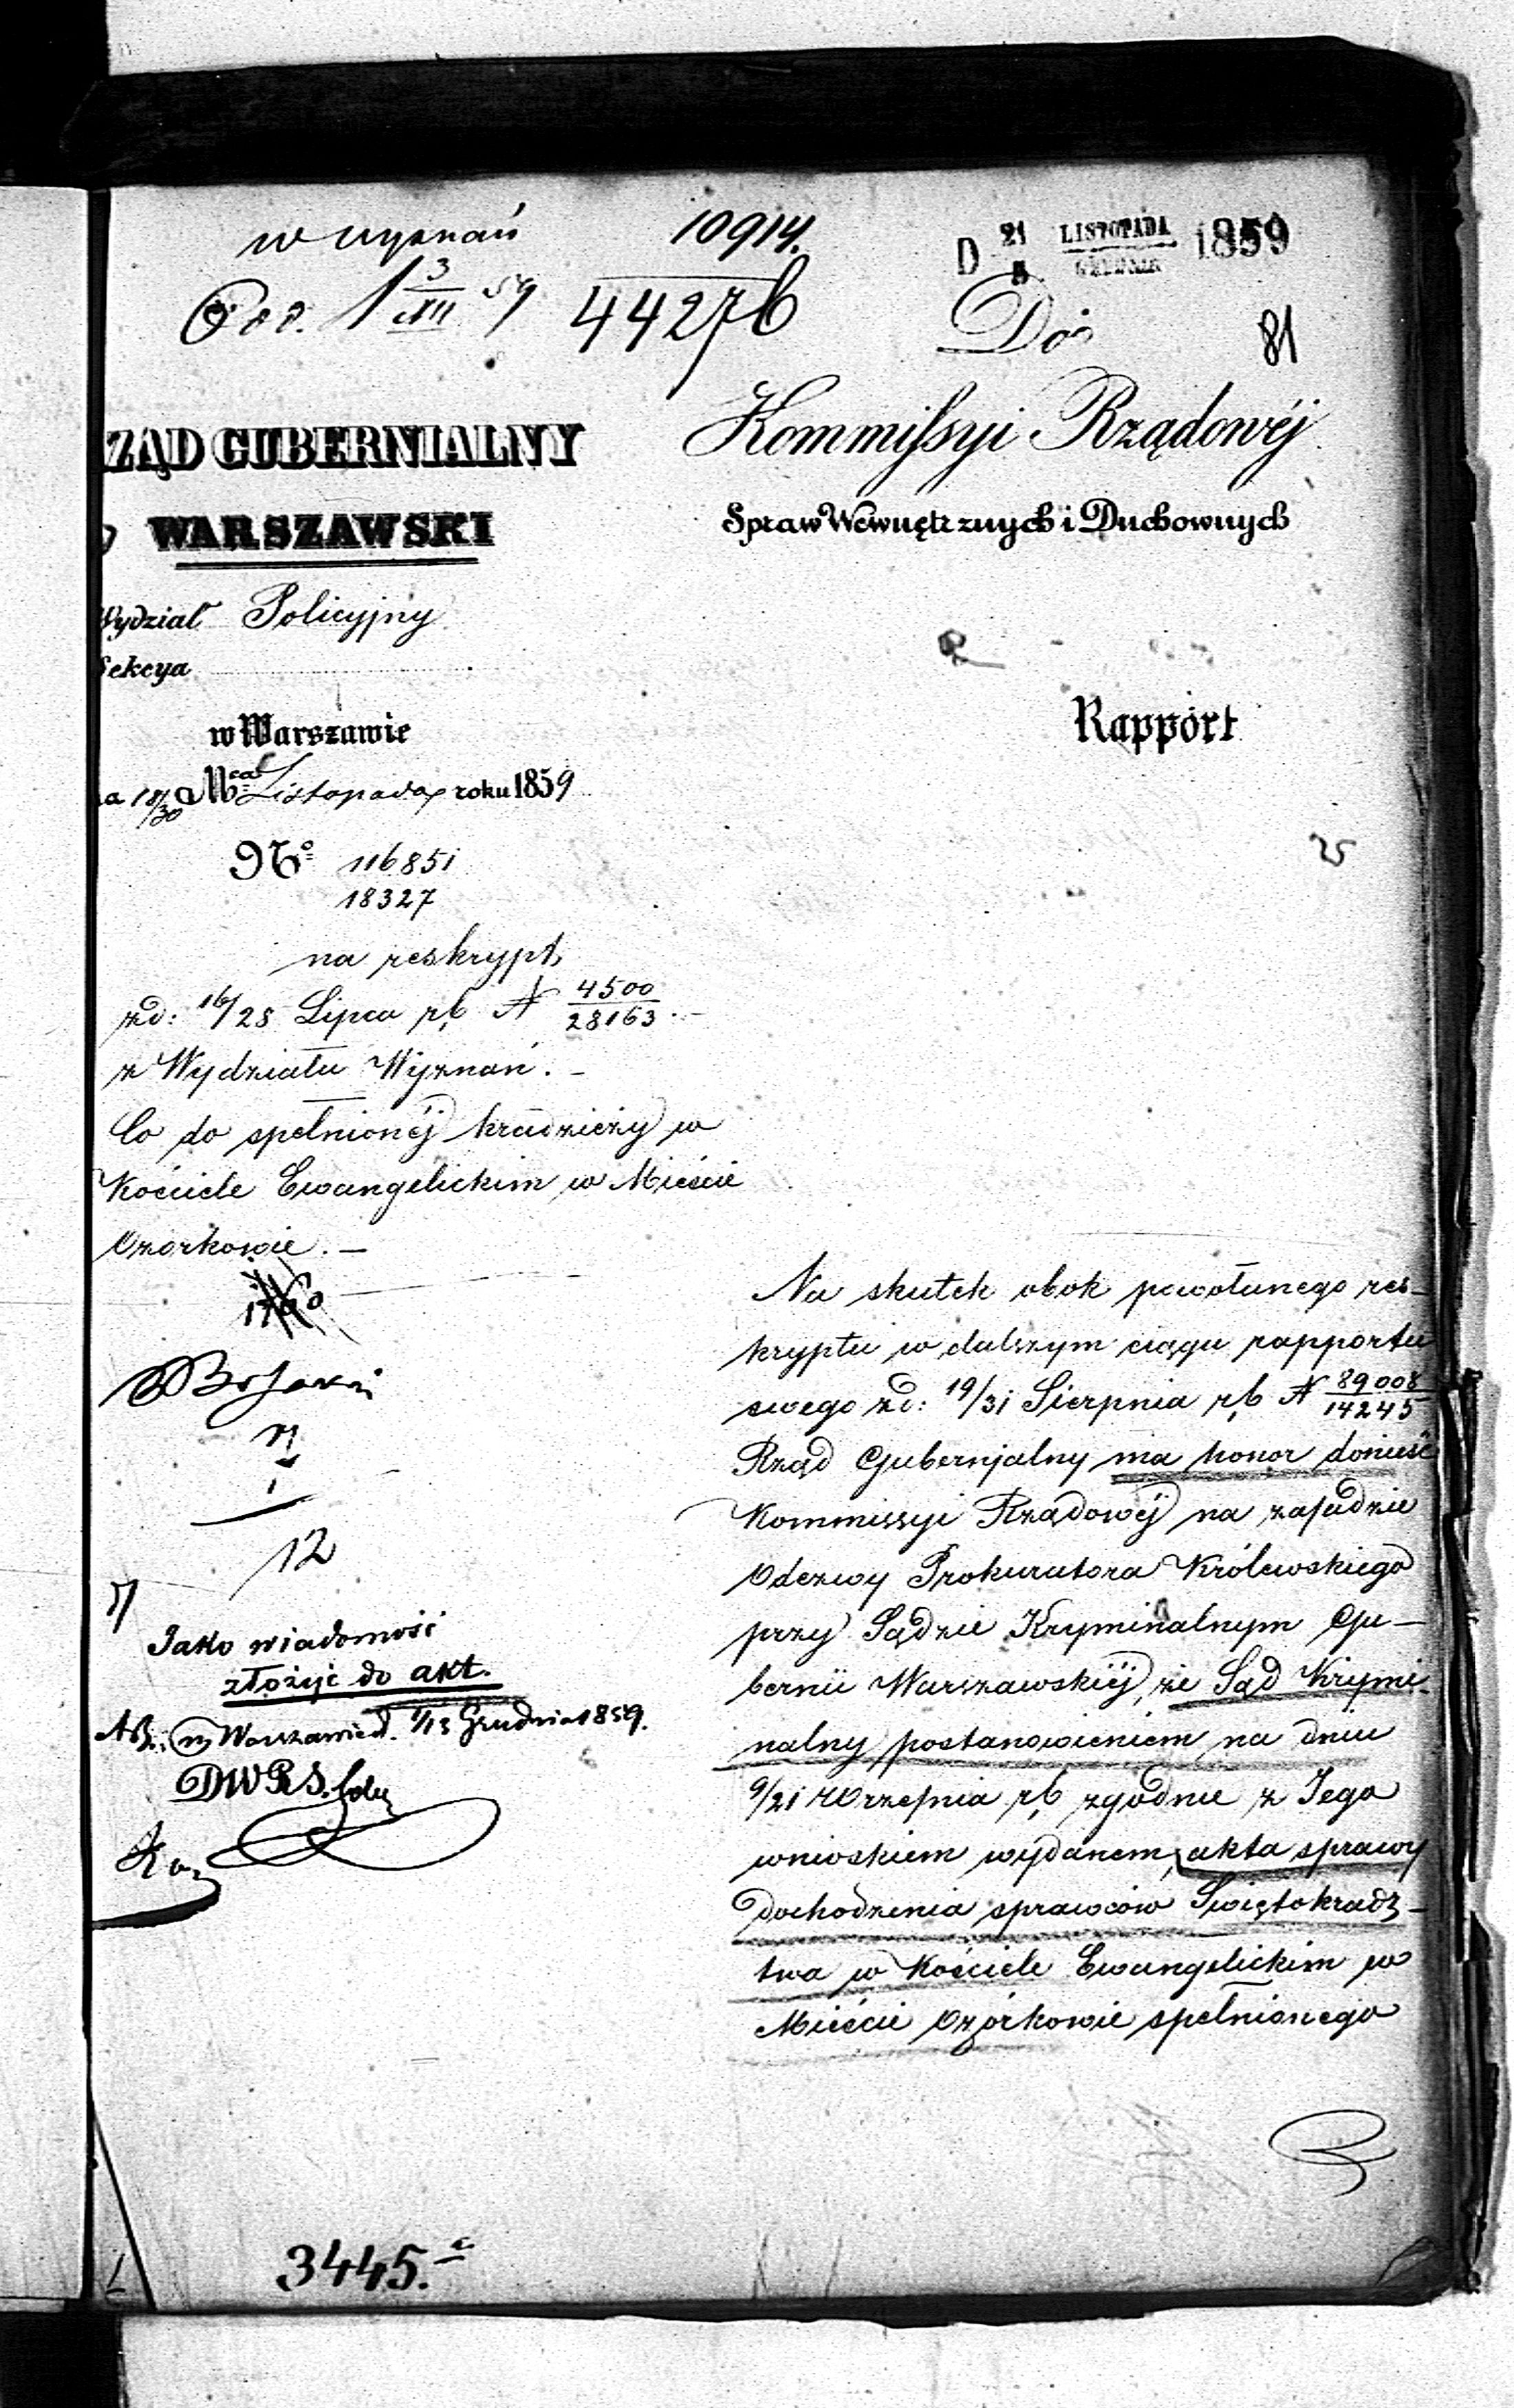 w wyznań
10914.
44276
D 21 LISTOPADA 1859
Do
81
Kommissyi Rządowéj
Spraw Wewnętrznych i Duchownych
ZĄD GUBERNIALNY
WARSZAWSKI
Wydział Policyjny
Sekcya
w Warszawie
18/30 Mca Listopada roku 1859
No 116851
18327
Rapport
na reskrypt
zd: 16/28 Lipca rb N 4500/28163.
z Wydziału Wyznań. -
Co do spełnionéj kradzieży w
Kościele Ewangelickim w Mieście
Ozorkowie. -
12
Jako wiadomość
złożyć do akt.
w Warszawie d. 1/13 Grudnia 1859.
Na skutek obok powołanego res-
kryptu w dalszym ciągu rapportu
swego zd: 19/31 Sierpnia rb N 89008/14245
Rząd Gubernjalny ma honor donieść
Kommissyi Rządowéj na zasadzie
Odezwy Prokuratora Królewskiego
przy Sądzie Kryminalnym Gu-
bernii Warszawskiéj, że Sąd Krymi-
nalny postanowieniem na dniu
9/21 Września rb zgodnie z Jego
wnioskiem wydanem, akta sprawy
dochodzenia sprawców Świętokradz-
twa w Kościele Ewangelickim w
Mieście Ozórkowie spełnionego
3445.